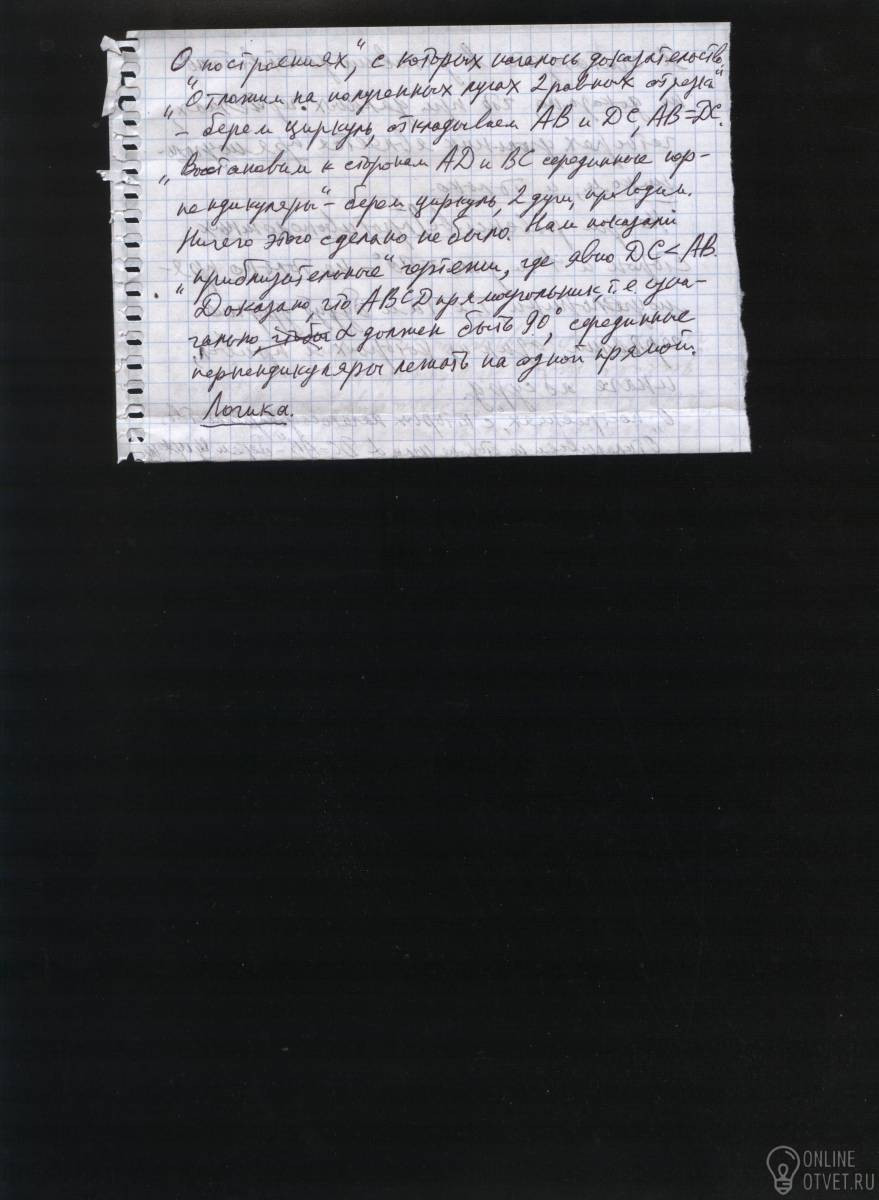 О построениях", с которых началось доказательство
"Отложим на полученных лучах 2 равных отрезка"
- берем циркуль, откладываем AB и DC, AB=DC.
"Восстановим к сторонам AD и BC серединные пер-
пендикуляры" - берем циркуль, 2 дуги, проводим.
Ничего этого сделано не было. Нам показали
"приблизительные" чертежи, где явно DC<AB.
Доказано, что ABCD прямоугольник т.е изна-
чально, чтобы α должен быть 90°, серединные
перпендикуляры лежать на одной прямой.
Логика.
ONLINE
OTVET.RU